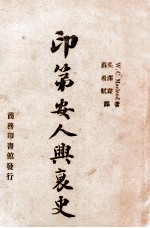 W. C. Macleod 著
吳澤霖 蘇希軾 譯
印第安人興衰史
商務印書館發行